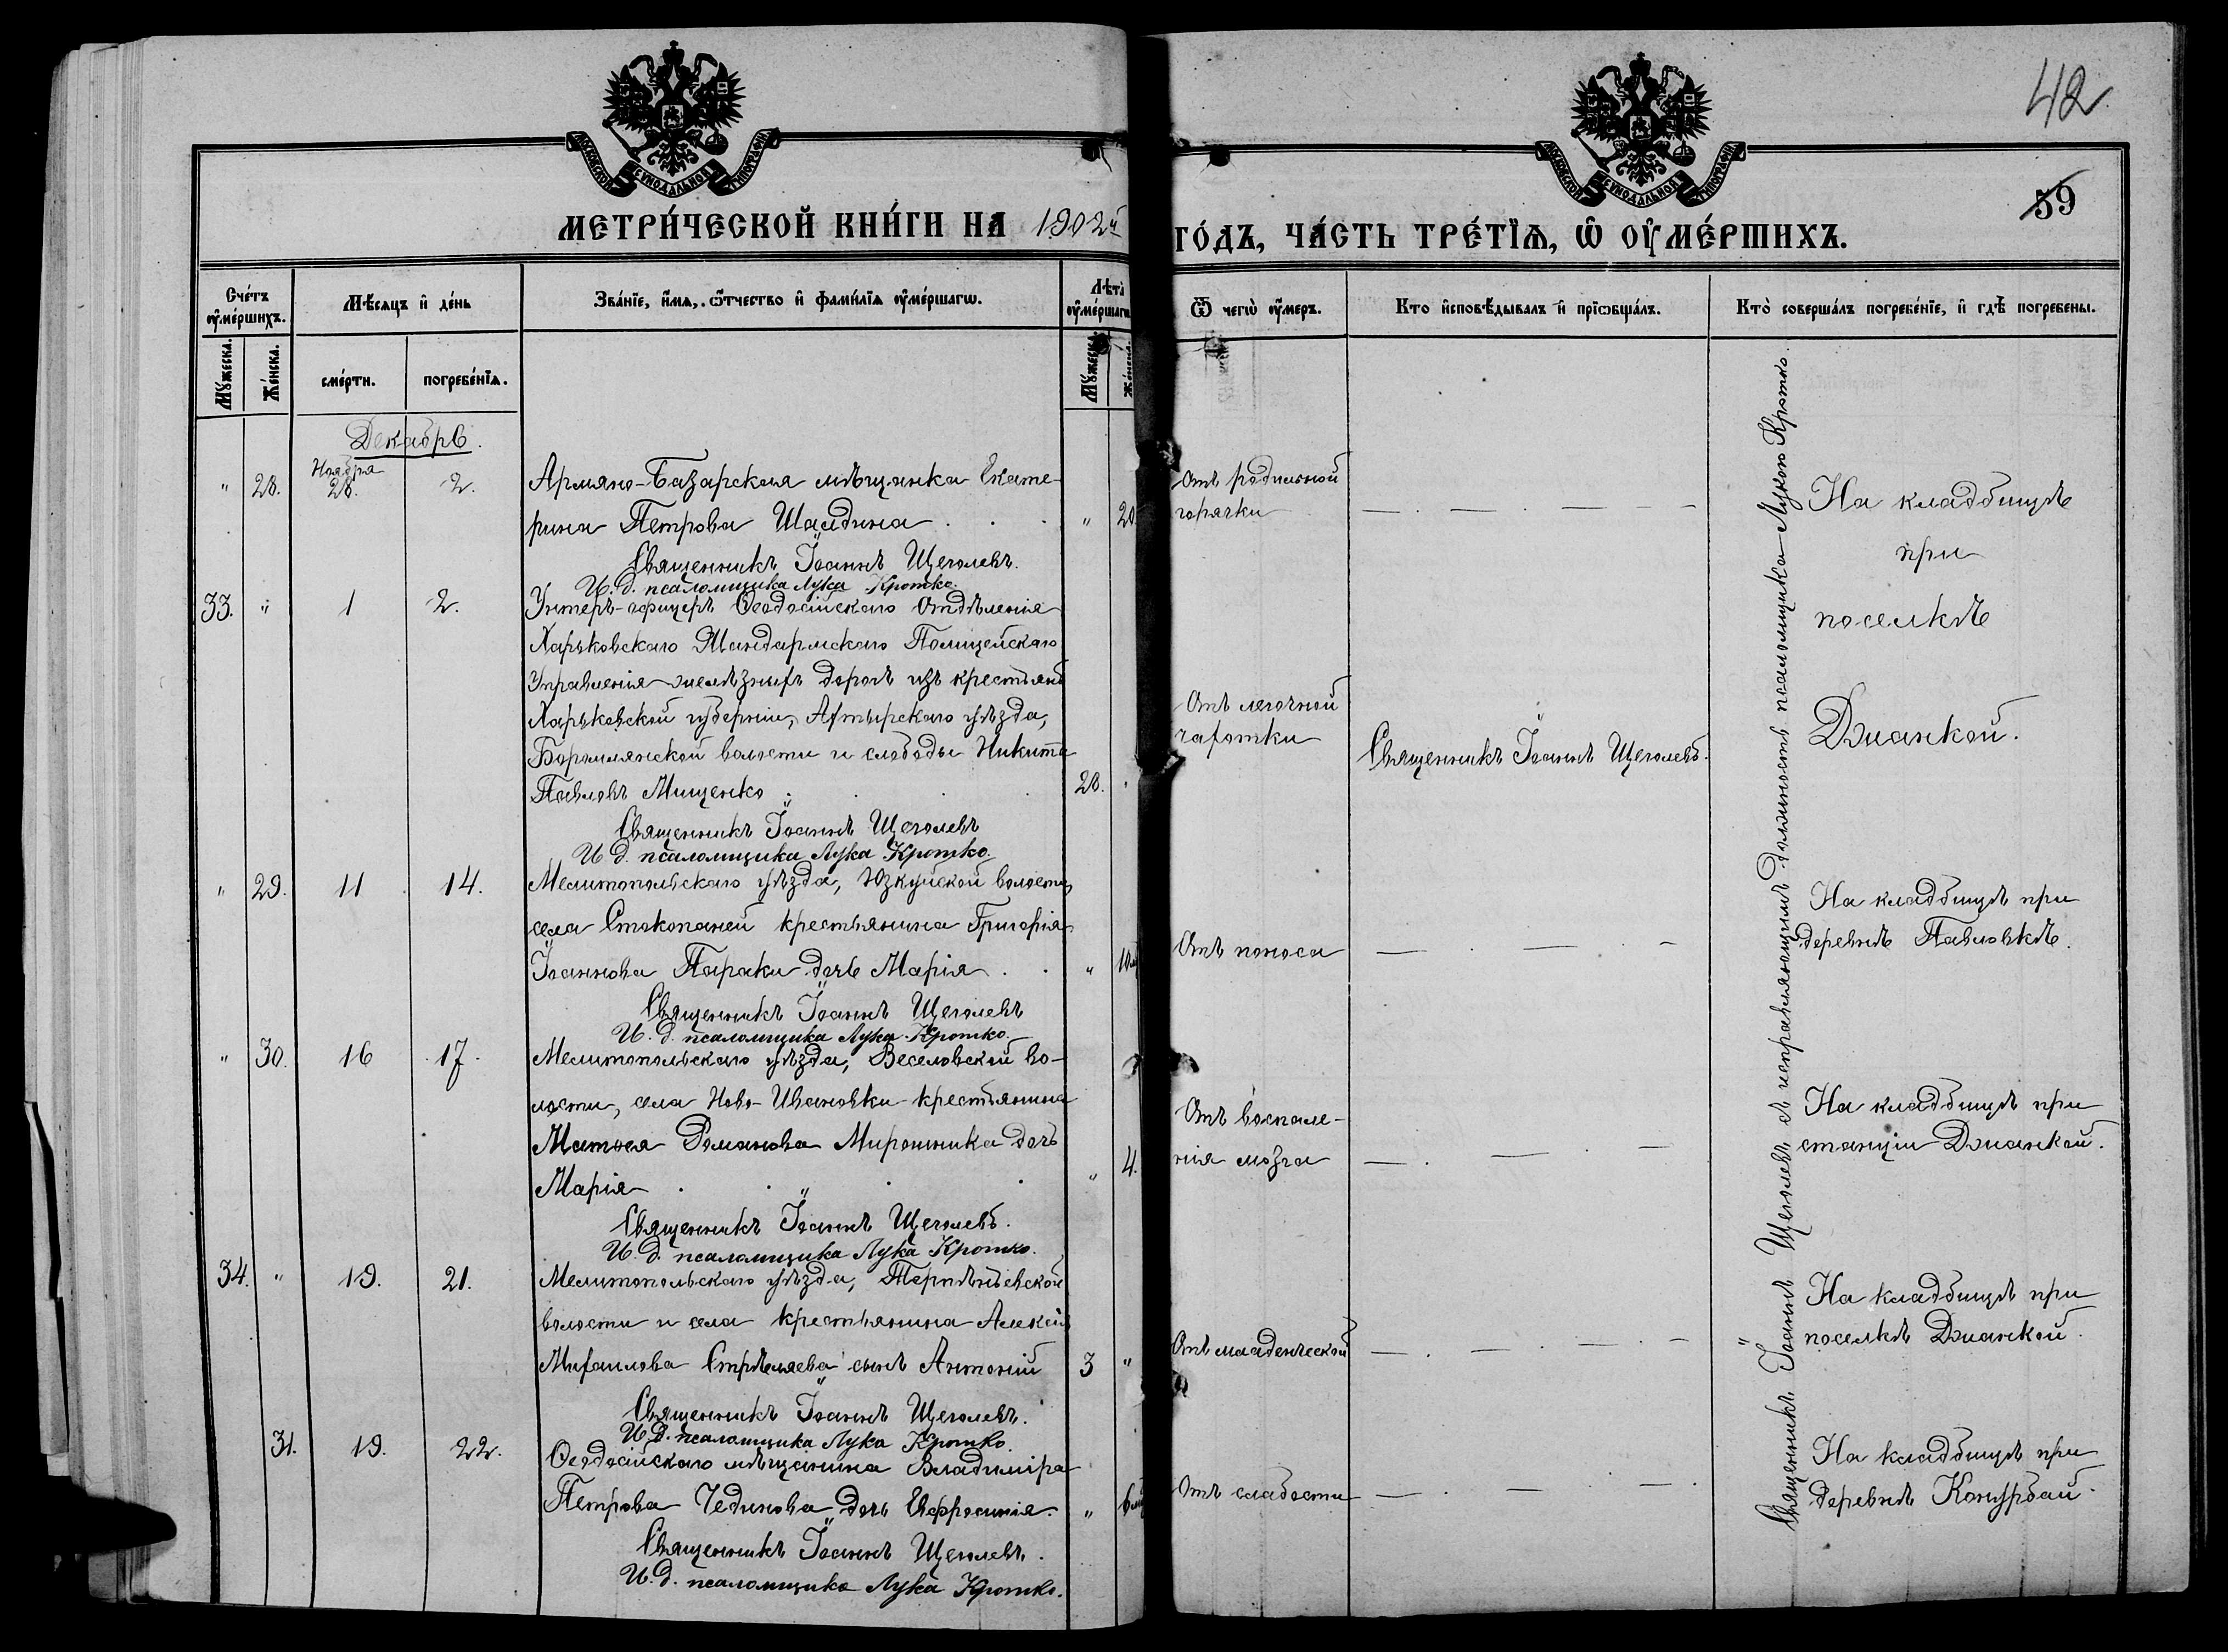 42
59
МОСКОВСКОЙ СѴНОДАЛЬНОЙ ТИПОГРАФІИ
МОСКОВСКОЙ СѴНОДАЛЬНОЙ ТИПОГРАФІИ
МЕТРИ́ЧЕСКОЙ КНИ́ГИ НА 1902й
ГО́ДЪ, ЧА́СТЬ ТРЕ́ТІѦ, Ѡ҆ ОУ҆МЕ́РШИХЪ.
Сче́тъ оу҆ме́ршихъ.
Мѣ́сяцъ и҆ де́нь
Зва́нїе, и҆́мѧ, ѻ҆́тчество и҆ фами́лїѧ оу҆ме́ршагѡ.
Лѣта̀ оу҆ме́ршагѡ
Ѿ чегѡ̀ оу҆́меръ.
Кто̀ и҆сповѣ́дывалъ и҆ прїѡбща́лъ.
Кто̀ соверша́лъ погребе́нїе, и҆ гдѣ̀ погребены.
Мꙋ́жеска.
Же́нска.
сме́рти.
погребе́нїѧ.
Мꙋ́жеска.
Же́нска.
Декабрь.
" 28. Ноября 28. 2. Армяно-Базарская мѣщанка Екате-
рина Петрова Шалдина . . . " 20
Отъ родильной
горячки
На кладбищѣ
при
поселкѣ
Джанкой.
Священникъ Іоаннъ Щеголевъ.
И. д. псаломщика Лука Кротко.
33. " 1 2. Унтеръ-офицеръ Ѳеодосійскаго Отдѣленія
Харьковскаго Жандармскаго Полицейскаго
Управленія желѣзныхъ дорогъ изъ крестьянъ
Харьковской губерніи, Ахтырскаго уѣзда,
Боромлянской волости и слободы Никита
Павловъ Мищенко . . . 28.
Отъ легочной
чахотки
Священникъ Іоаннъ Щеголевъ.
Священникъ Іоаннъ Щеголевъ
И. д. псаломщика Лука Кротко.
" 29. 11 14. Мелитопольскаго уѣзда, Юзкуйской волости,
села Стокопаней крестьянина Григорія
Іоаннова Параки дочь Марія . . "
Отъ поноса
На кладбищѣ при
деревнѣ Павловкѣ.
Священникъ Іоаннъ Щеголевъ
И. д. псаломщика Лука Кротко.
" 30. 16 17. Мелитопольскаго уѣзда, Веселовской во-
лости, села Ново-Ивановки крестьянина
Матѳея Романова Мирошника дочь
Марія . . . . " 4.
Отъ воспале-
нія мозга
На кладбищѣ при
станціи Джанкой.
Священникъ Іоаннъ Щеголевъ.
И. д. псаломщика Лука Кротко.
34. " 19. 21. Мелитопольскаго уѣзда, Терпѣньевской
волости и села крестьянина Алексія
Михаилова Стрѣляева сынъ Антоній 3 "
Отъ младенческой
На кладбищѣ при
поселкѣ Джанкой.
Священникъ Іоаннъ Щеголевъ.
И. д. псаломщика Лука Кротко.
31. 19. 22. Ѳеодосійскаго мѣщанина Владиміра
Петрова Чединова дочь Евфросинія. "
Отъ слабости
На кладбищѣ при
деревнѣ Конурбай.
Священникъ Іоаннъ Щеголевъ.
И. д. псаломщика Лука Кротко.
Священникъ Іоаннъ Щеголевъ съ исправляющимъ должность псаломщика Лукою Кротко.